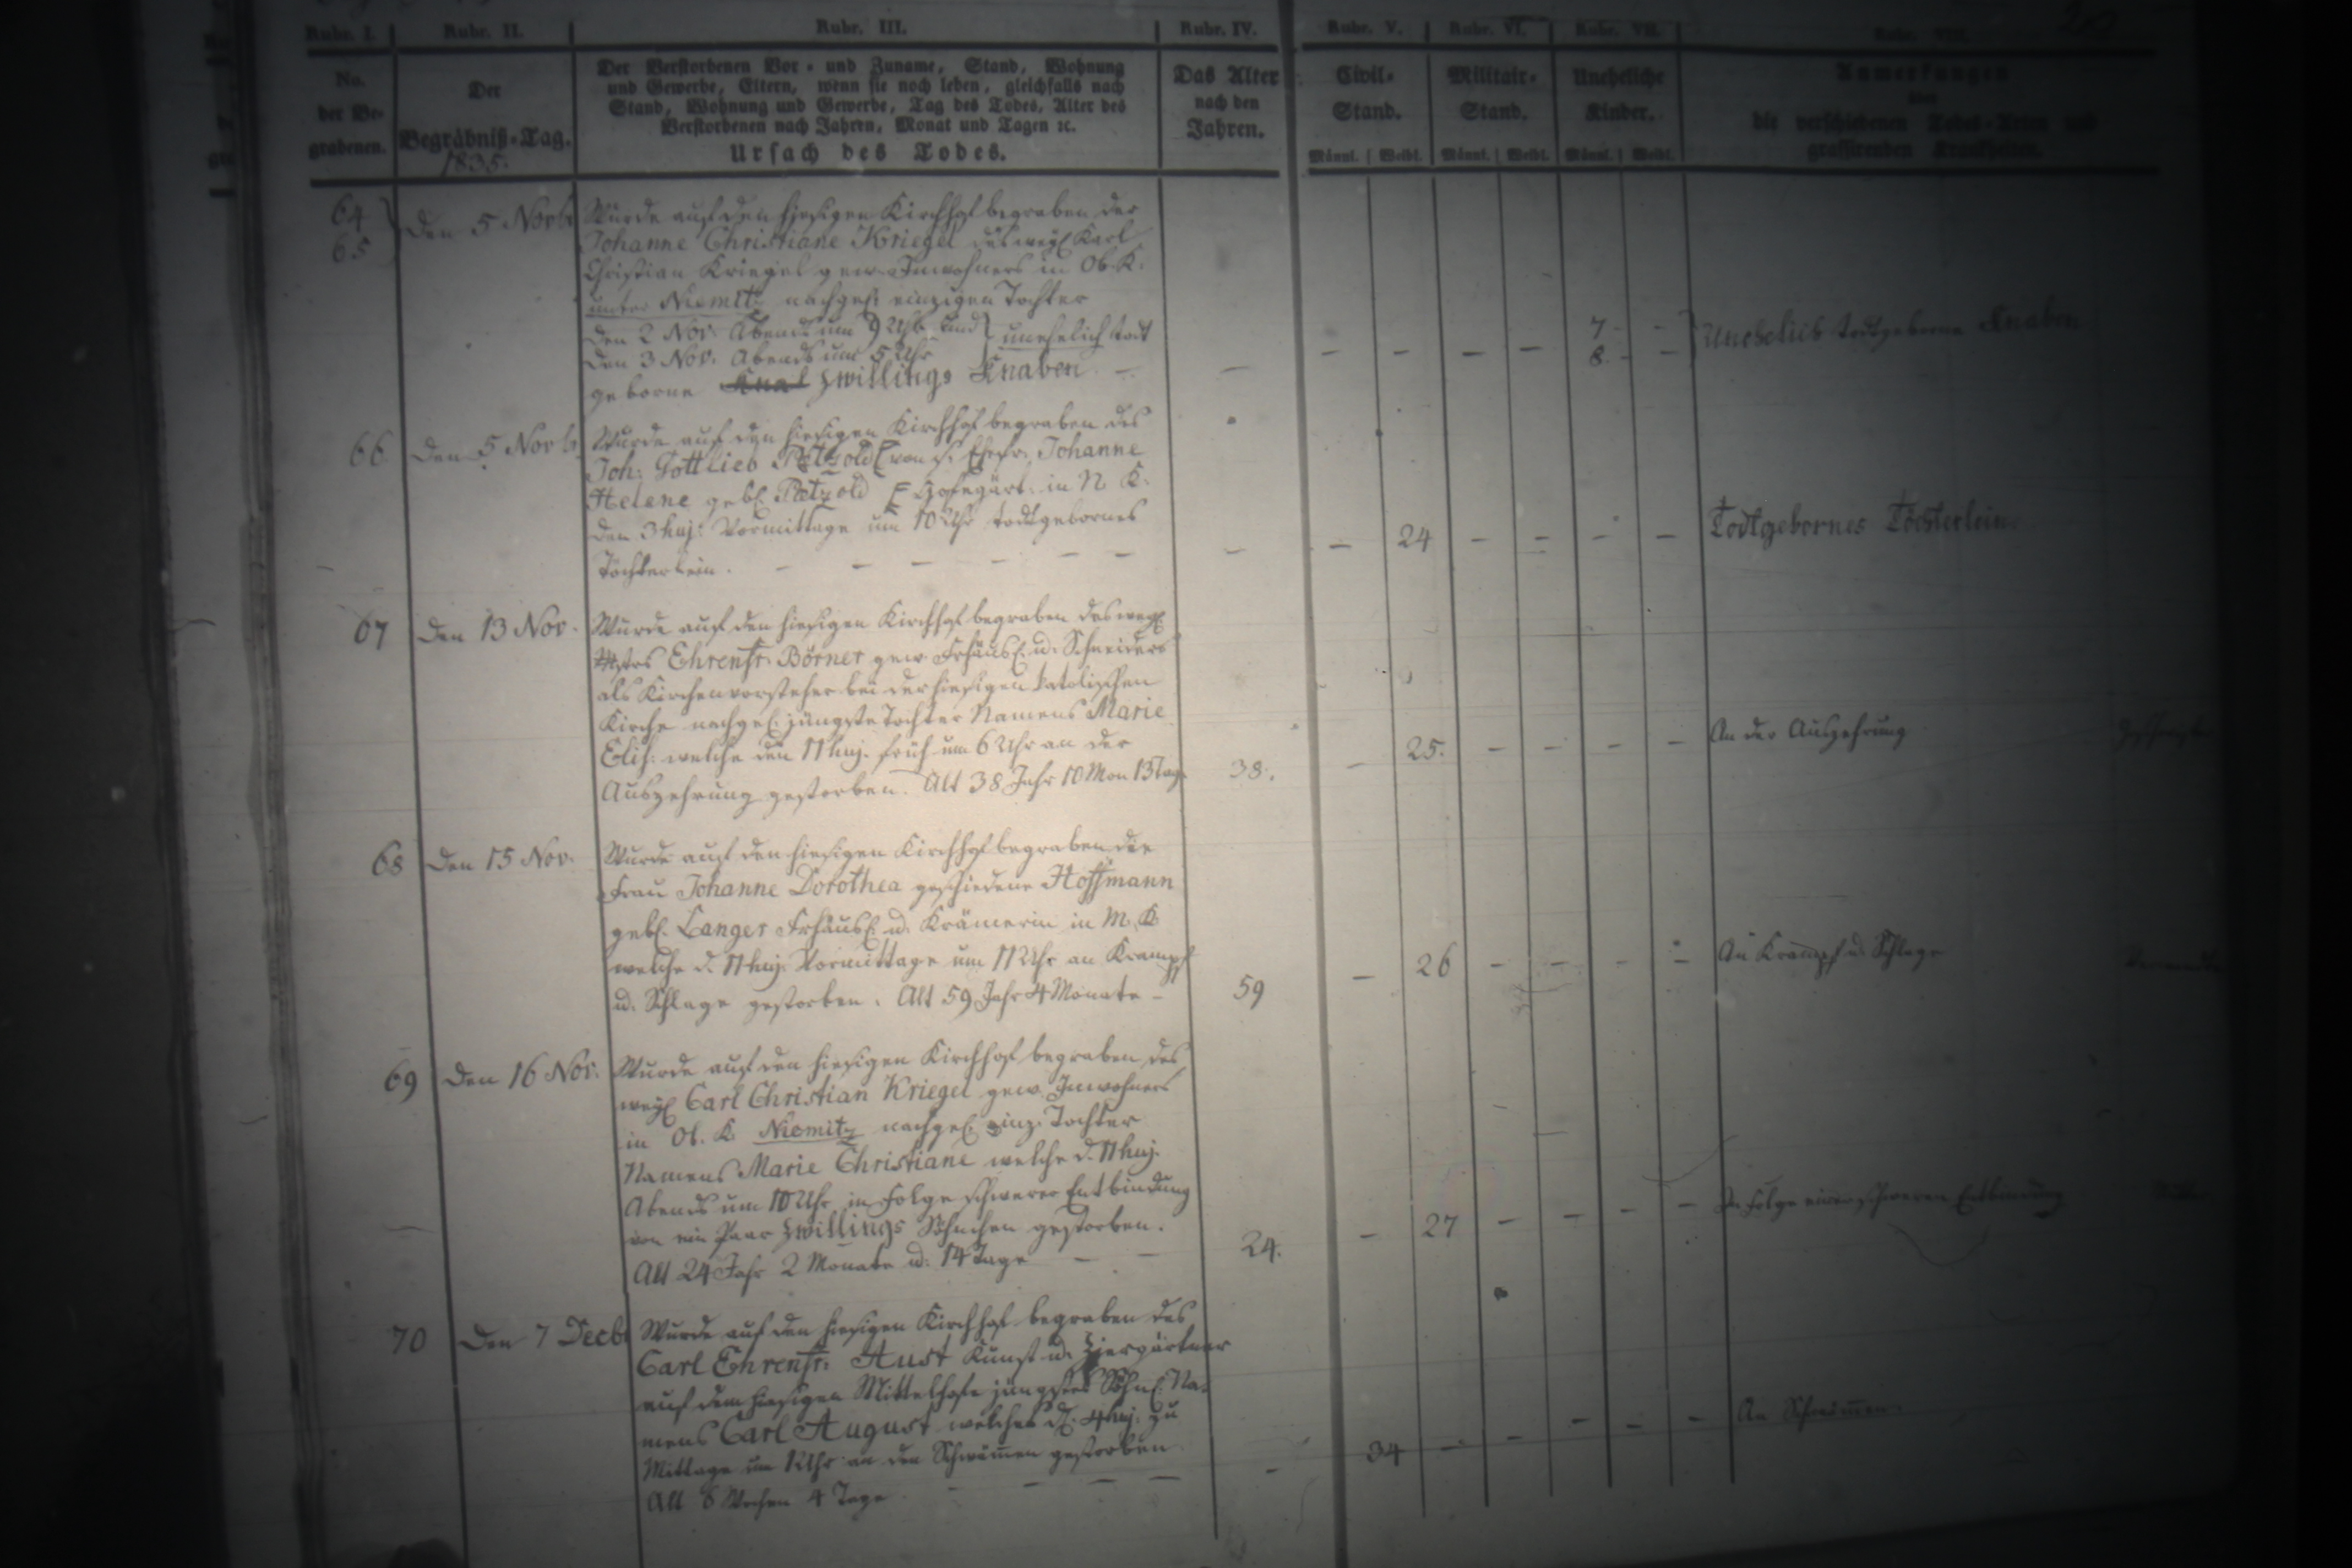 Rubr. I. Rubr. II. Rubr. III. Rubr. IV. Rubr. V. Rubr. VI. Rubr. VII. Rubr. VIII.
No.
der Be-
grabenen.
Der
Begräbniß-Tag.
1835.
Der Verstorbenen Vor- und Zuname, Stand, Wohnung
und Gewerbe, Eltern, wenn sie noch leben, gleichfalls nach
Stand, Wohnung und Gewerbe, Tag des Todes, Alter des
Verstorbenen nach Jahren, Monat und Tagen ꝛc.
Ursach des Todes.
Das Alter
nach den
Jahren.
Civil-
Stand.
Männl. Weibl.
Militair-
Stand.
Männl. Weibl.
Uneheliche
Kinder.
Männl. Weibl.
Anmerkungen
über
die verschiedenen Todes-Arten und
grassirenden Krankheiten.
64
65
Den 5 Novb
Wurde auf den hiesigen Kirchhof begraben der
Johanne Christiane Kriegel des weyl Karl
Christian Kriegel gew. Inwohners in Ob. K.
unter Niemitz nachgel. einzigen Tochter
den 2 Nov. Abends um 9 Uhr und
den 3 Nov. Abends um 5 Uhr unehelich todt
geborne Zwillings Knaben. —
— — — — — 7 —
8 —
todtgeborne Knaben
66 Den 5 Novb.
Wurde auf den hiesigen Kirchhof begraben des
Joh: Gottlieb Petzold von s. Ehefr. Johanne
Helene geb. Petzold Hofegärt. in N. K.
den 3 huj: Vormittags um 10 Uhr todtgebornes
Töchterlein. — — — — — —
— — 24 — — — —
Todtgebornes Töchterlein.
67 Den 13 Nov.
Wurde auf den hiesigen Kirchhof begraben des weyl
Mstrs Ehrenfr. Börner gew. Frhäusl. u. Schneiders
als Kirchenvorsteher bei der hiesigen katolischen
Kirche nachgel. jüngste Tochter Namens Marie
Elis: welche den 11 huj. früh um 6 Uhr an der
Auszehrung gestorben. Alt 38 Jahr 10 Mon 13 Tag.
38. — 25. — — — —
An der Auszehrung
68 Den 15 Nov.
Wurde auf den hiesigen Kirchhof begraben die
Frau Johanne Dorothea geschiedene Hoffmann
geb. Langer Frhäusl. u. Krämerin in M. K.
welche d. 11 huj. Vormittags um 11 Uhr an Krampf
u. Schlage gestorben. Alt 59 Jahr 4 Monate —
59 — 26 — — — —
An Krampf u. Schlage
69 Den 16 Nov.
Wurde auf den hiesigen Kirchhof begraben des
weyl Carl Christian Kriegel gew. Inwohners
in Ob. K. Niemitz nachgel. einz. Tochter
Namens Marie Christiane welche d. 11 huj.
Abends um 10 Uhr in Folge schwerer Entbindung
von ein Paar Zwillings Söhnchen gestorben.
Alt 24 Jahr 2 Monate u. 14 Tage — —
24. — 27 — — — —
In Folge einer schweren Entbindung
70 Den 7 Decb
Wurde auf den hiesigen Kirchhof begraben des
Carl Ehrenfr: Aust Kunst u. Ziergärtner
auf dem hiesigen Mittelhofe jüngstes Söhnl. Na-
mens Carl August welches d. 4 huj. zu
Mittage um 12 Uhr an den Schwämmen gestorben
Alt 8 Wochen 4 Tage — — — —
— 34 — — — — —
An Schwämmen